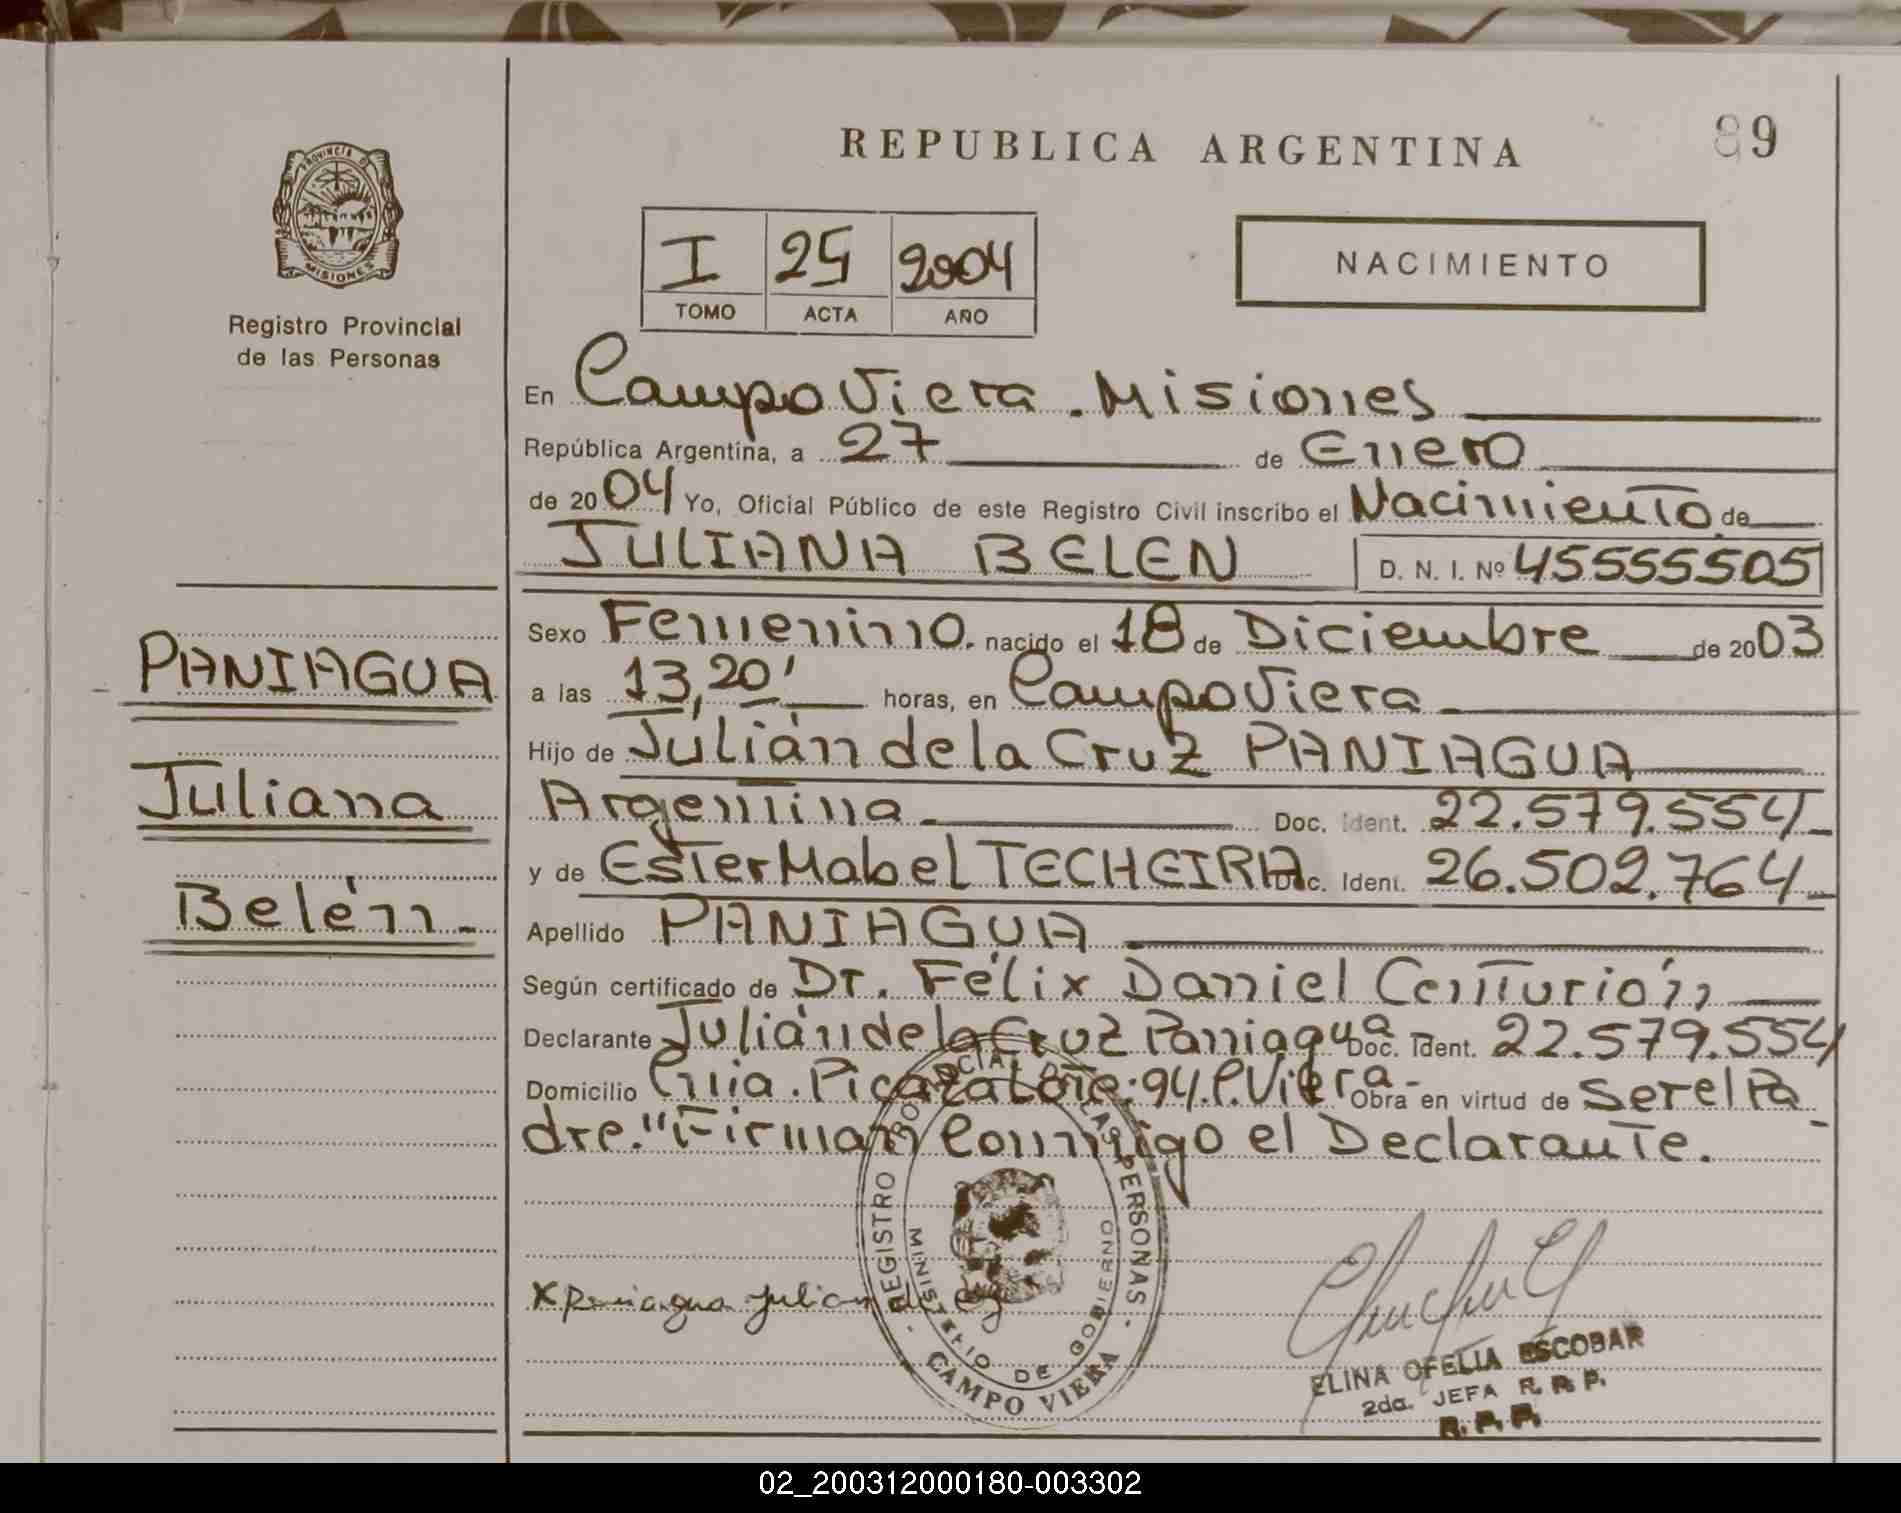 REPUBLICA ARGENTINA
89
PROVINCIA DE
MISIONES
Registro Provincial
de las Personas
I 25 2004
TOMO ACTA AÑO
NACIMIENTO
En Campo Viera. Misiones
República Argentina, a 27 de Enero
de 2004 Yo, Oficial Público de este Registro Civil inscribo el Nacimiento de
JULIANA BELEN D. N. I. Nº 45555505
PANIAGUA
Juliana
Belén.-
Sexo Femenino. nacido el 18 de Diciembre de 2003
a las 13,20' horas, en Campo Viera
Hijo de Julián de la Cruz PANIAGUA
Argentina Doc. Ident. 22.579.554-
y de Ester Mabel TECHEIRA Doc. Ident. 26.502.764-
Apellido PANIAGUA
Según certificado de Dr. Félix Daniel Centurión
Declarante Julián de la Cruz Paniagua Doc. Ident. 22.579.554
Domicilio Cnia. Picaza Lote: 94. C. Viera- Obra en virtud de Ser el Pa-
dre." Firman Conmigo el Declarante.
REGISTRO PROVINCIAL DE LAS PERSONAS
MINISTERIO DE GOBIERNO
CAMPO VIERA
X Paniagua Julian de
ELINA OFELIA ESCOBAR
2da. JEFA R. P. P.
R. P. P.
02_200312000180-003302